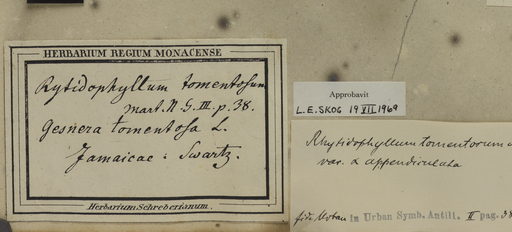 HERBARIUM REGIUM MONACENSE
Rytidophyllum tomentosum
mart. N. G. III. p. 38.
Gesnera tomentosa L.
Jamaicae: Swartz.
Herbarium Schreberianum.
Approbavit
L.E. SKOG 19 VII 1969
Rhytidophyllum tomentosum
var. α appendiculata
fide Urban in Urban Symb. Antill. II pag. 38